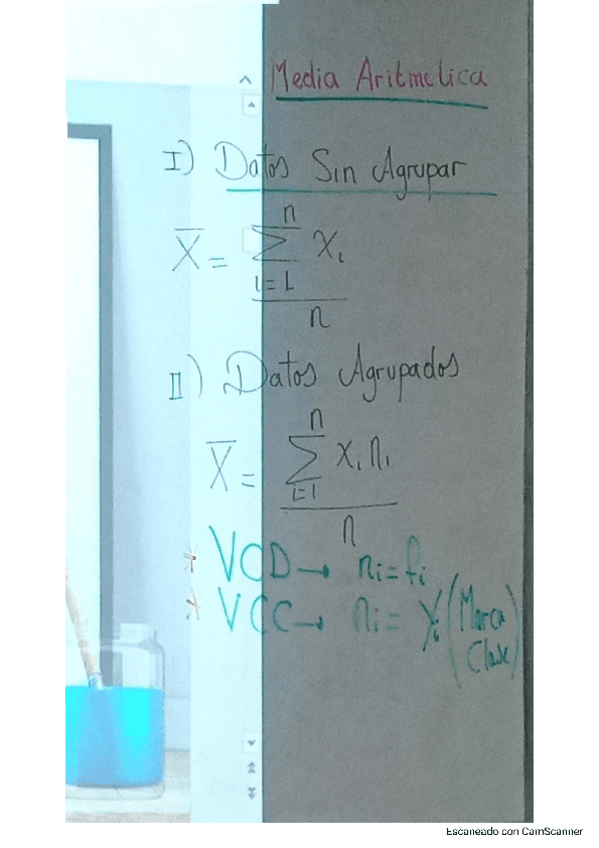 Media Aritmetica
I) Datos Sin Agrupar
n
X̅ = ∑ xᵢ
i=1
n
II) Datos Agrupados
n
X̅ = ∑ xᵢ nᵢ
i=1
n
* VCD → nᵢ = fᵢ
* VCC → nᵢ = yᵢ (Marca
Clase)
Escaneado con CamScanner